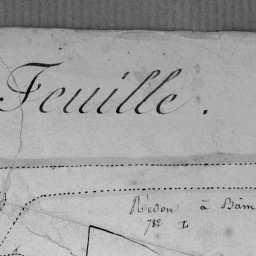 Feuille.
Redon à Bâm
782 L